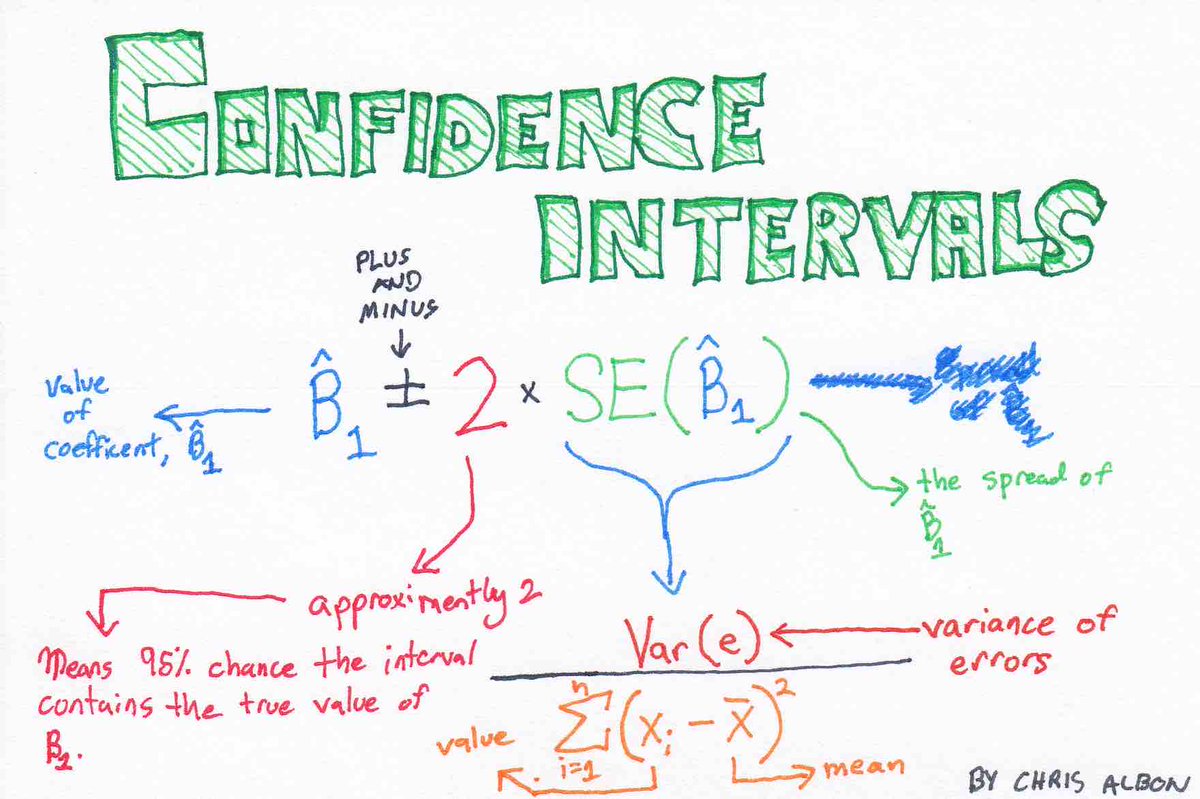 CONFIDENCE
INTERVALS
PLUS
AND
MINUS
B̂₁ ± 2 × SE(B̂₁)
value
of
coefficent, B̂₁
the spread of
B̂₁
approximently 2
Means 95% chance the interval
contains the true value of
B₁.
Var(e)
variance of
errors
n
Σ (xᵢ - x̄)²
i=1
value
mean
BY CHRIS ALBON